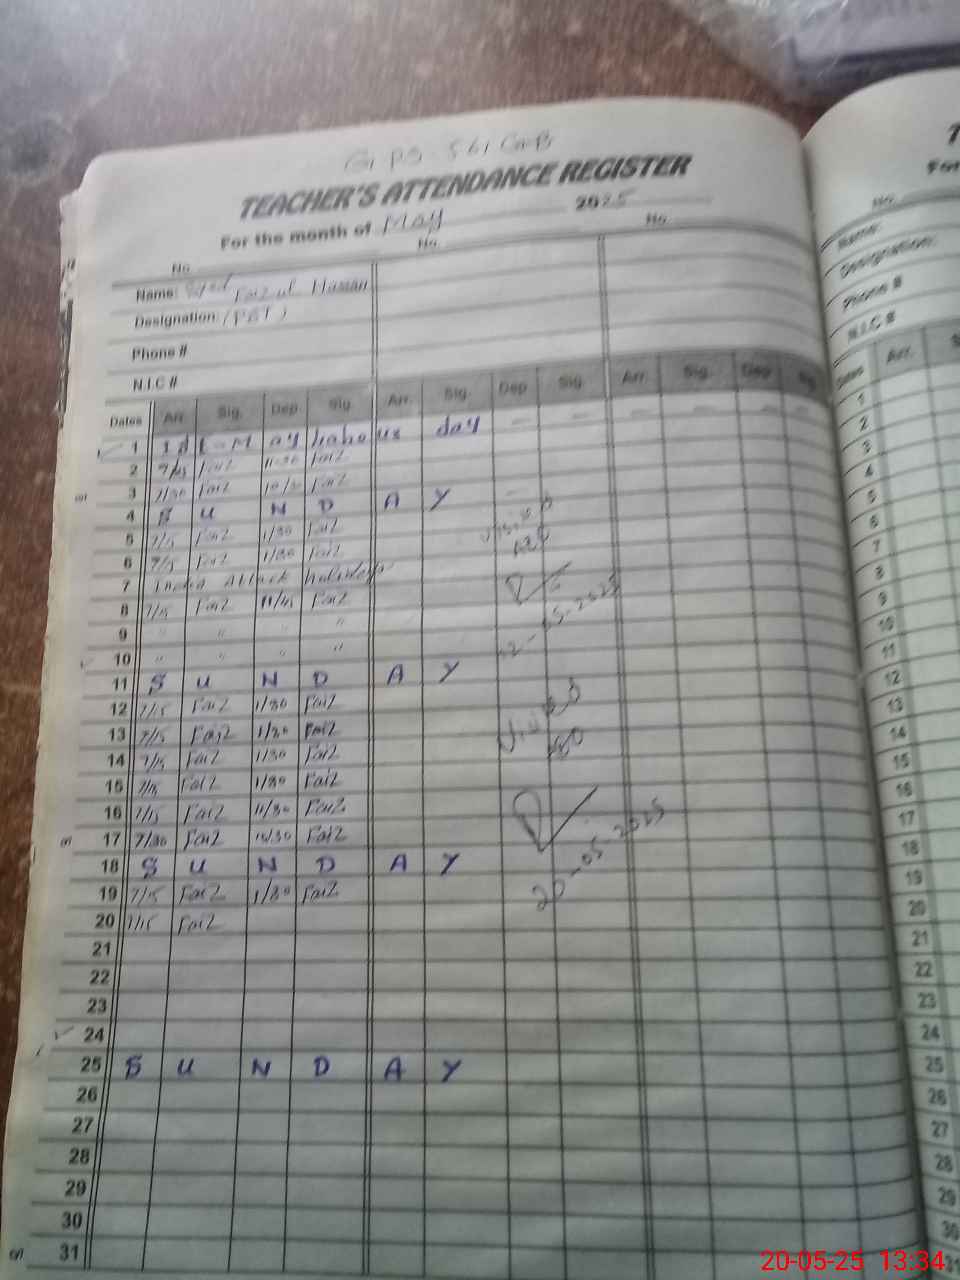 TEACHER'S ATTENDANCE REGISTER
For the month of May 2025
No. No. No.
Name: Faizul Hassan
Designation: (PST)
Phone #
N.I.C #
Dates Arr. Sig. Dep Sig. Arr. Sig. Dep Sig. Arr. Sig. Dep Sig.
1 day
2 7/15 Faiz 11-30 Faiz
3 7/30 Faiz 10/30 Faiz
4 S U N D A Y
5 7/15 Faiz 1/30 Faiz
6 7/15 Faiz 1/30 Faiz
7 India Attack
8 7/15 Faiz 11/45 Faiz
9 " " " "
10 " " " "
11 S U N D A Y
12 7/15 Faiz 1/30 Faiz
13 7/15 Faiz 1/30 Faiz
14 7/15 Faiz 1/30 Faiz
15 7/15 Faiz 1/30 Faiz
16 7/15 Faiz 11/30 Faiz
17 7/30 Faiz 10/30 Faiz
18 S U N D A Y
19 7/15 Faiz 1/30 Faiz
20 7/15 Faiz
21
22
23
24
25 S U N D A Y
26
27
28
29
30
31
Visited
12-05-2025
Visited
20-05-2025
No.
Name:
Designation:
Phone #
N.I.C #
Dates Arr.
1
2
3
4
5
6
7
8
9
10
11
12
13
14
15
16
17
18
19
20
21
22
23
24
25
26
27
28
29
30
31
20-05-25 13:34